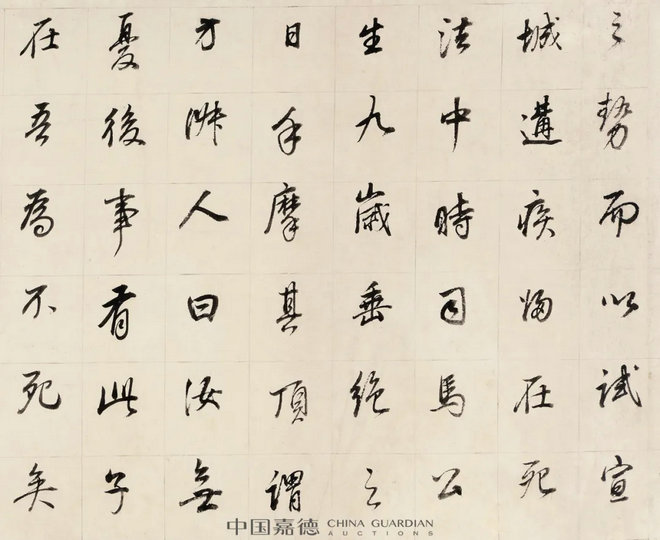 之勢而以試宣
城遘疾歸在死
法中時司馬公
生九歲垂絕之
日手摩其頂謂
方淑人曰汝無
憂後事看此子
在吾為不死矣
中国嘉德 CHINA GUARDIAN
AUCTIONS